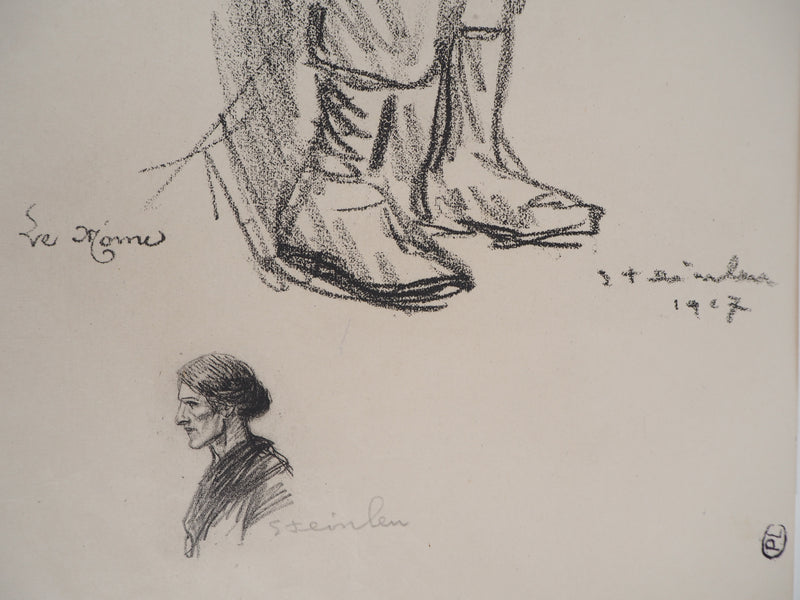 Le Môme
Steinlen
Steinlen
PL